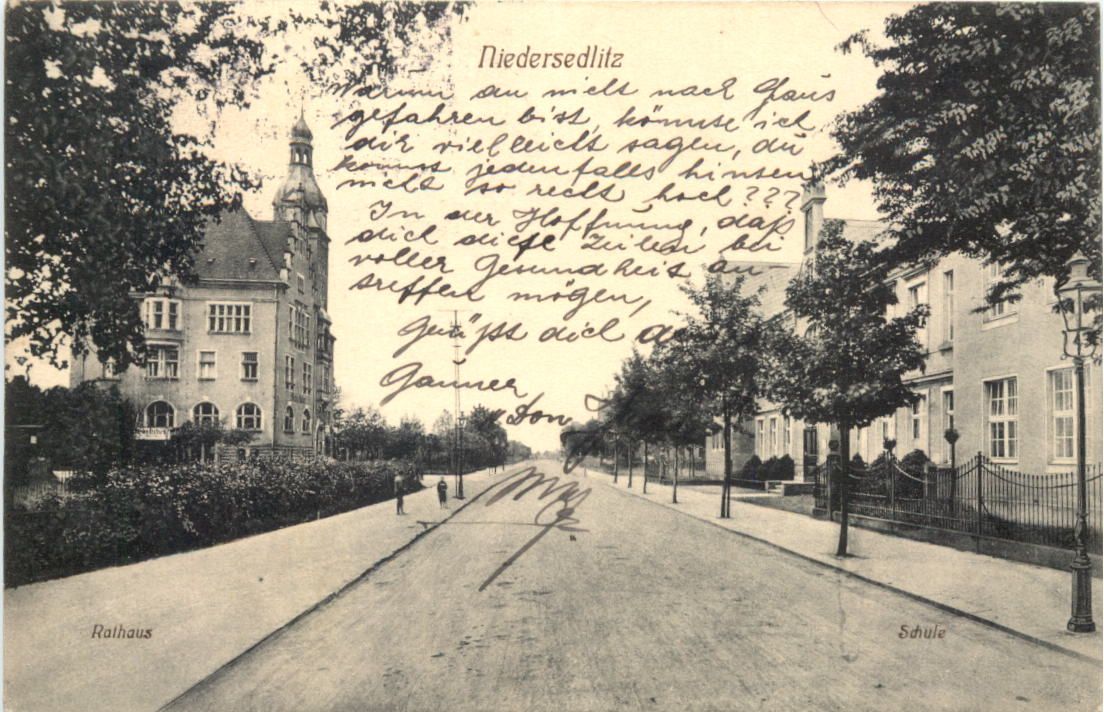 Niedersedlitz
Warum du nicht nach Haus
gefahren bist, könnte ich
dir vielleicht sagen, du
kannst jedenfalls hinten
nicht so recht hoch???
In der Hoffnung, daß
dich diese Zeilen bei
voller Gesundheit an
treffen mögen,
grüßt dich
Rathaus
Schule